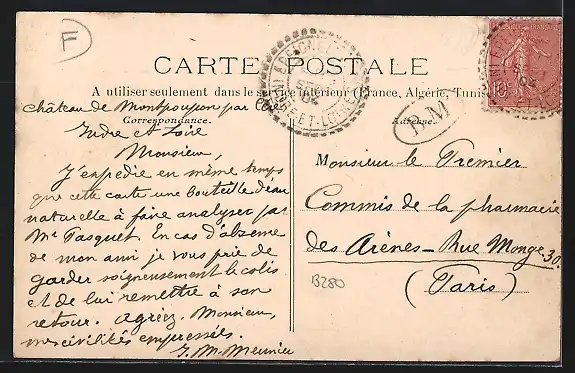 F
CARTE POSTALE
A utiliser seulement dans le service intérieur (France, Algérie, Tuni
château de Montpoupon par Cé
Indre et Loire
Correspondance.
Monsieur,
J'expédie en même temps
que cette carte une bouteille d'eau
naturelle à faire analyser par
Mr Pasquet. En cas d'absence
de mon ami je vous prie de
garder soigneusement le colis
et de lui remettre à son
retour. Agréez, Monsieur,
mes civilités empressées.
J. M. Meunier
ET-LOIRE
10c
R.M
Adresse.
Monsieur le Premier
Commis de la pharmacie
des Arènes - Rue Monge 30.
(Paris)
B280